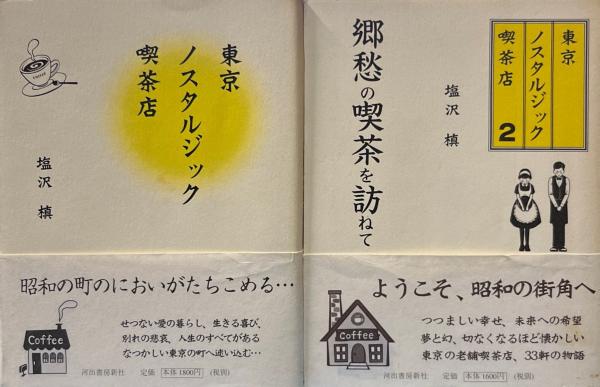 東京
ノスタルジック
喫茶店
塩沢 槙
COFFEE
昭和の町のにおいがたちこめる…
せつない愛の暮らし、生きる喜び、
別れの悲哀、人生のすべてがある
なつかしい東京の町へ迷い込む…
Coffee
河出書房新社 定価 本体1800円 (税別)
東京
ノスタルジック
喫茶店
2
塩沢 槙
郷愁の喫茶を訪ねて
ようこそ、昭和の街角へ
つつましい幸せ、未来への希望
夢と幻、切なくなるほど懐かしい
東京の老舗喫茶店、33軒の物語
Coffee
河出書房新社 定価 本体1600円 (税別)